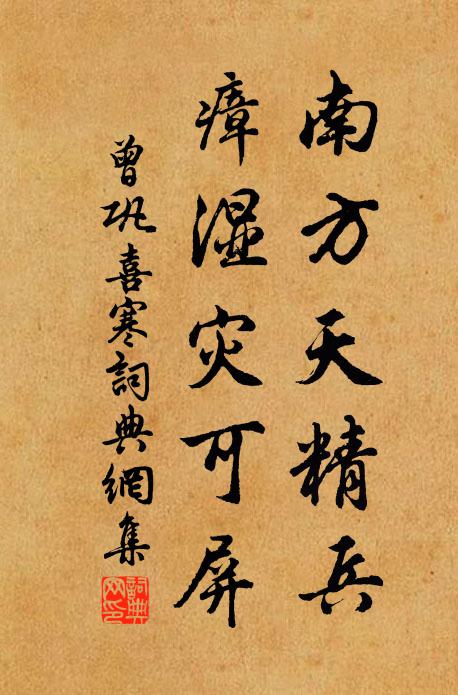 南方天精兵
瘴湿灾可屏
曾巩喜寒詞典網集
詞典網印